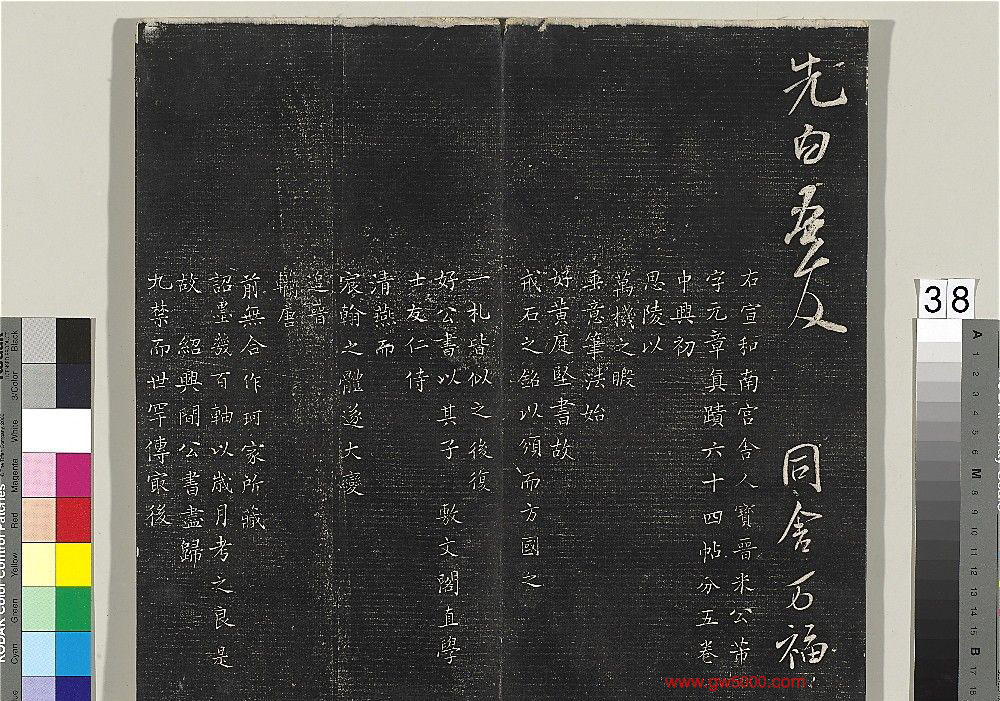 先白 同舍万福
右宣和南宮舍人寶晋米公芾
字元章真蹟六十四帖分五卷
中興初
思陵以
萬機之暇
垂意筆法始
好黄庭堅書故
戒石之銘以頒而方國之
一札皆似之後復
好公書以其子敷文閣直學
士友仁侍
清燕而
宸翰之體遂大變
追晋
轢唐
前無合作珂家所藏
詔墨發百軸以歲月考之良是
故紹興間公書盡歸
九禁而世罕傳寂後
38
Black
3/Color
White
Magenta
Red
Yellow
Green
Cyan
KODAK Color Control Patches
A
1
2
3
4
5
6
M
8
9
10
11
12
13
14
15
B
17
18
www.gw5000.com